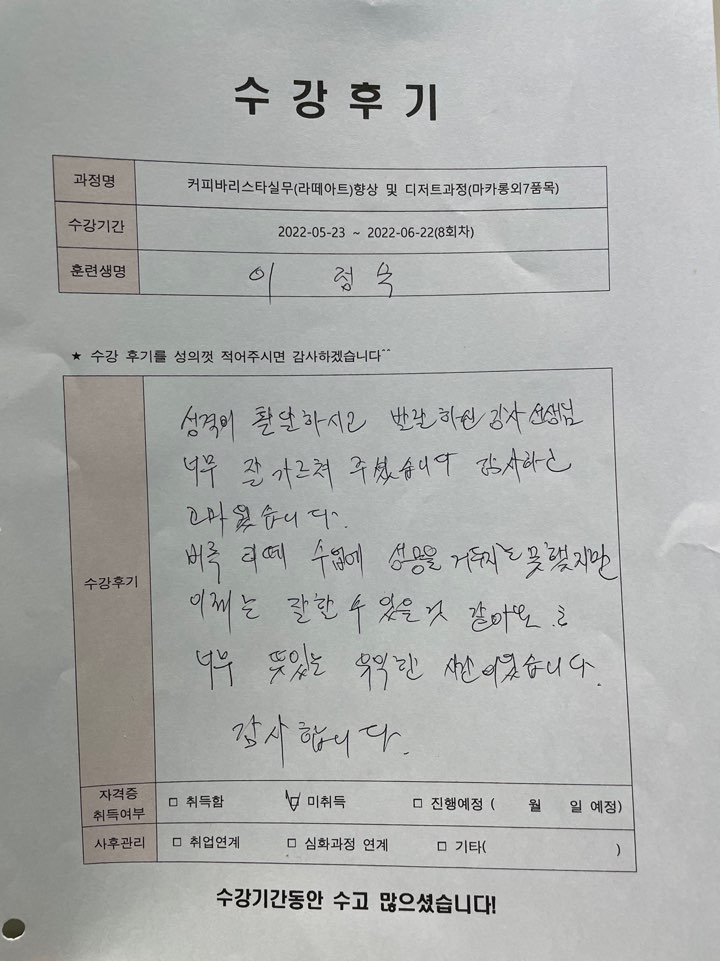 수강후기
과정명 커피바리스타실무(라떼아트)향상 및 디저트과정(마카롱외7품목)
수강기간 2022-05-23 ~ 2022-06-22(8회차)
훈련생명 이 점숙
★ 수강 후기를 성의껏 적어주시면 감사하겠습니다^^
수강후기
성격이 활달하시고 발랄하신 강사 선생님
너무 잘 가르쳐 주셨습니다 감사하고
고마웠습니다.
비록 라떼 수업에 성공을 거두지는 못했지만
이제는 잘할 수 있을 것 같아요.
너무 뜻있는 유익한 시간이었습니다.
감사합니다.
자격증 취득여부 □ 취득함 ☑ 미취득 □ 진행예정 ( 월 일 예정)
사후관리 □ 취업연계 □ 심화과정 연계 □ 기타( )
수강기간동안 수고 많으셨습니다!